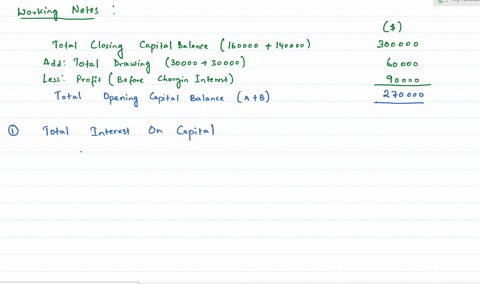 Working Notes :
($)
Total Closing Capital Balance (160000 + 140000) 300000
Add: Total Drawing (30000 + 30000) 60000
Less: Profit (Before Chargin Interest) 90000
Total Opening Capital Balance (A+B) 270000
① Total Interest On Capital